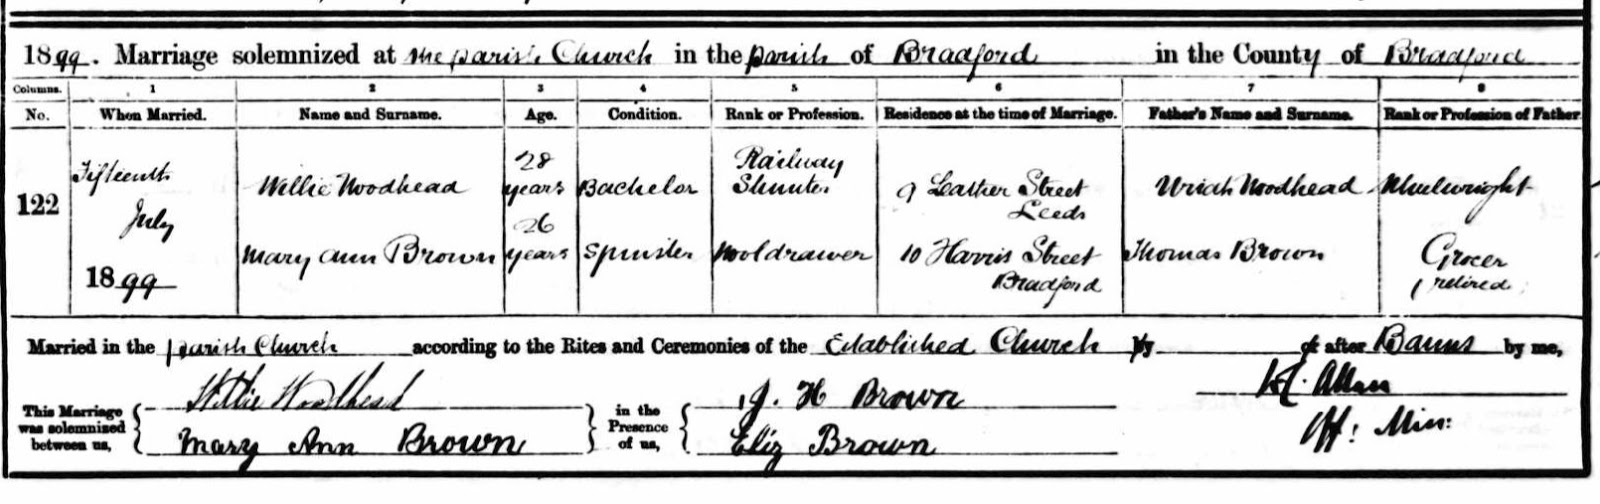 1899. Marriage solemnized at the parish Church in the parish of Bradford in the County of Bradford
Columns. 1 2 3 4 5 6 7 8
No. When Married. Name and Surname. Age. Condition. Rank or Profession. Residence at the time of Marriage. Father's Name and Surname. Rank or Profession of Father
122
Fifteenth
July
1899
Willie Woodhead
28
years
Bachelor
Railway
Shunter
9 Leather Street
Leeds
Uriah Woodhead
Wheelwright
Mary Ann Brown
26
years
Spinster
Wooldrawer
10 Harris Street
Bradford
Thomas Brown
Grocer
retired
Married in the parish Church according to the Rites and Ceremonies of the Established Church by or after Banns by me,
This Marriage
was solemnized
between us,
Willie Woodhead
Mary Ann Brown
in the
Presence
of us,
J. H Brown
Eliz Brown
Allan
Off: Min: